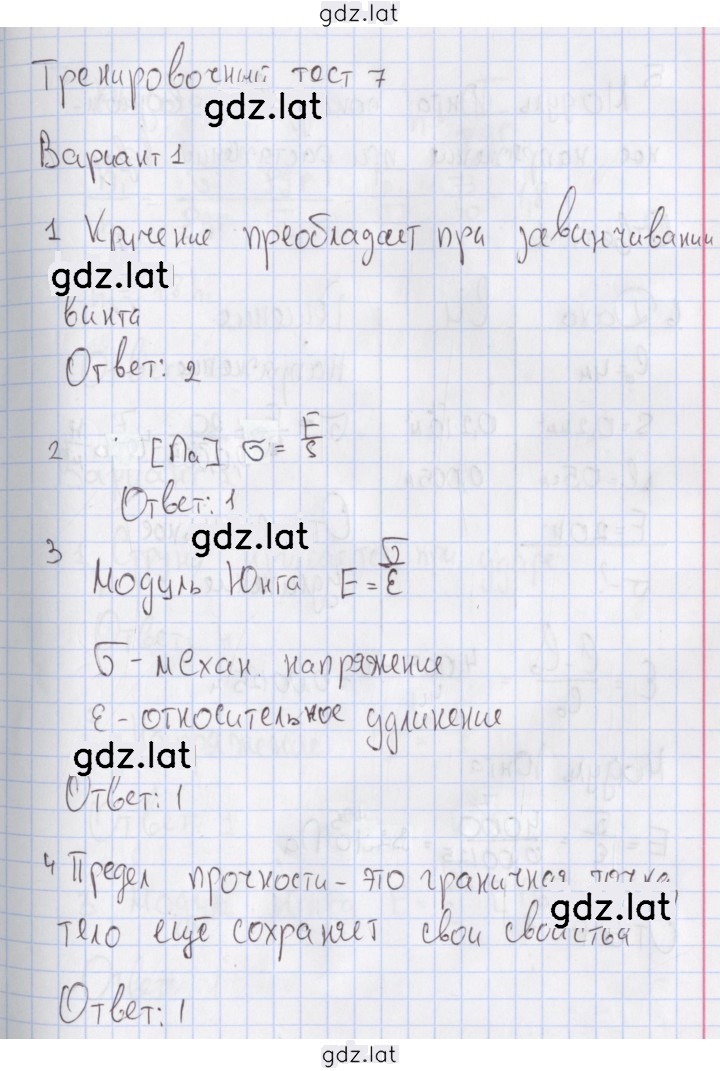 gdz.lat
Тренировочный тест 7
gdz.lat
Вариант 1
1 Кручение преобладает при завинчивании
gdz.lat
винта
Ответ: 2
2 [Па] σ = F/S
Ответ: 1
gdz.lat
3
Модуль Юнга E = σ/ε
σ - механ. напряжение
ε - относительное удлинение
gdz.lat
Ответ: 1
4 Предел прочности - это граничная точка,
gdz.lat
тело ещё сохраняет свои свойства
Ответ: 1
gdz.lat